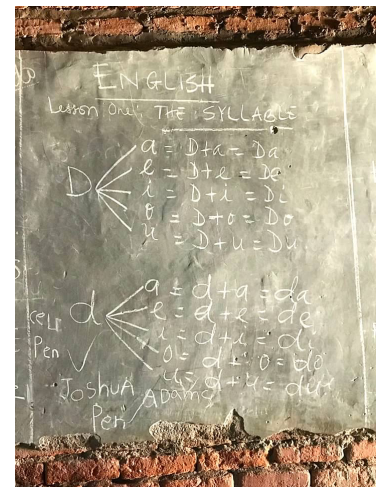 ENGLISH
Lesson One: THE SYLLABLE
D
a = D+a = Da
e = D+e = De
i = D+i = Di
o = D+o = Do
u = D+u = Du
d
a = d+a = da
e = d+e = de
i = d+i = di
o = d+o = do
u = d+u = du
Pen
JOSHUA ADAMS
Pen